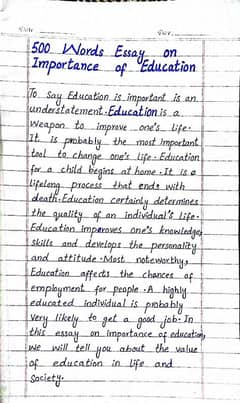 500 Words Essay on
Importance of Education
To say Education is important is an
understatement. Education is a
weapon to improve one's life.
It is probably the most important
tool to change one's life. Education
for a child begins at home. It is a
lifelong process that ends with
death. Education certainly determines
the quality of an individual's life.
Education improves one's knowledge,
skills and develops the personality
and attitude. Most noteworthy,
Education affects the chances of
employment for people. A highly
educated individual is probably
very likely to get a good job. In
this essay on importance of education,
we will tell you about the value
of education in life and
society.